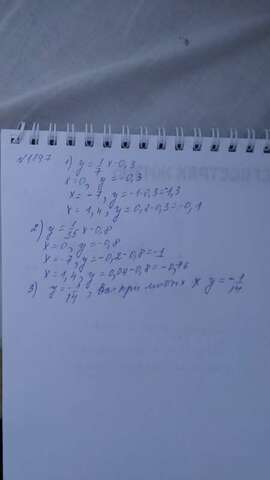 N1197 1) y = 1/7 x - 0,3
x = 0, y = -0,3
x = -7, y = -1-0,3=1,3
x = 1,4, y = 0,2-0,3=-0,1
2) y = 1/35 x - 0,8
x = 0, y = -0,8
x = -7, y = -0,2-0,8=-1
x = 1,4, y = 0,04-0,8=-0,76
3) y = -1/14, при любых x y = -1/14